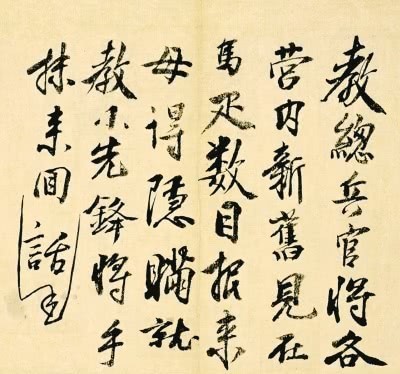 教總兵官將各
營内新舊見在
馬疋数目报来
毋得隱瞞就
教小先鋒將手
抹来回話